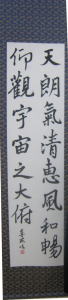 天朗氣清惠風和暢
仰觀宇宙之大俯